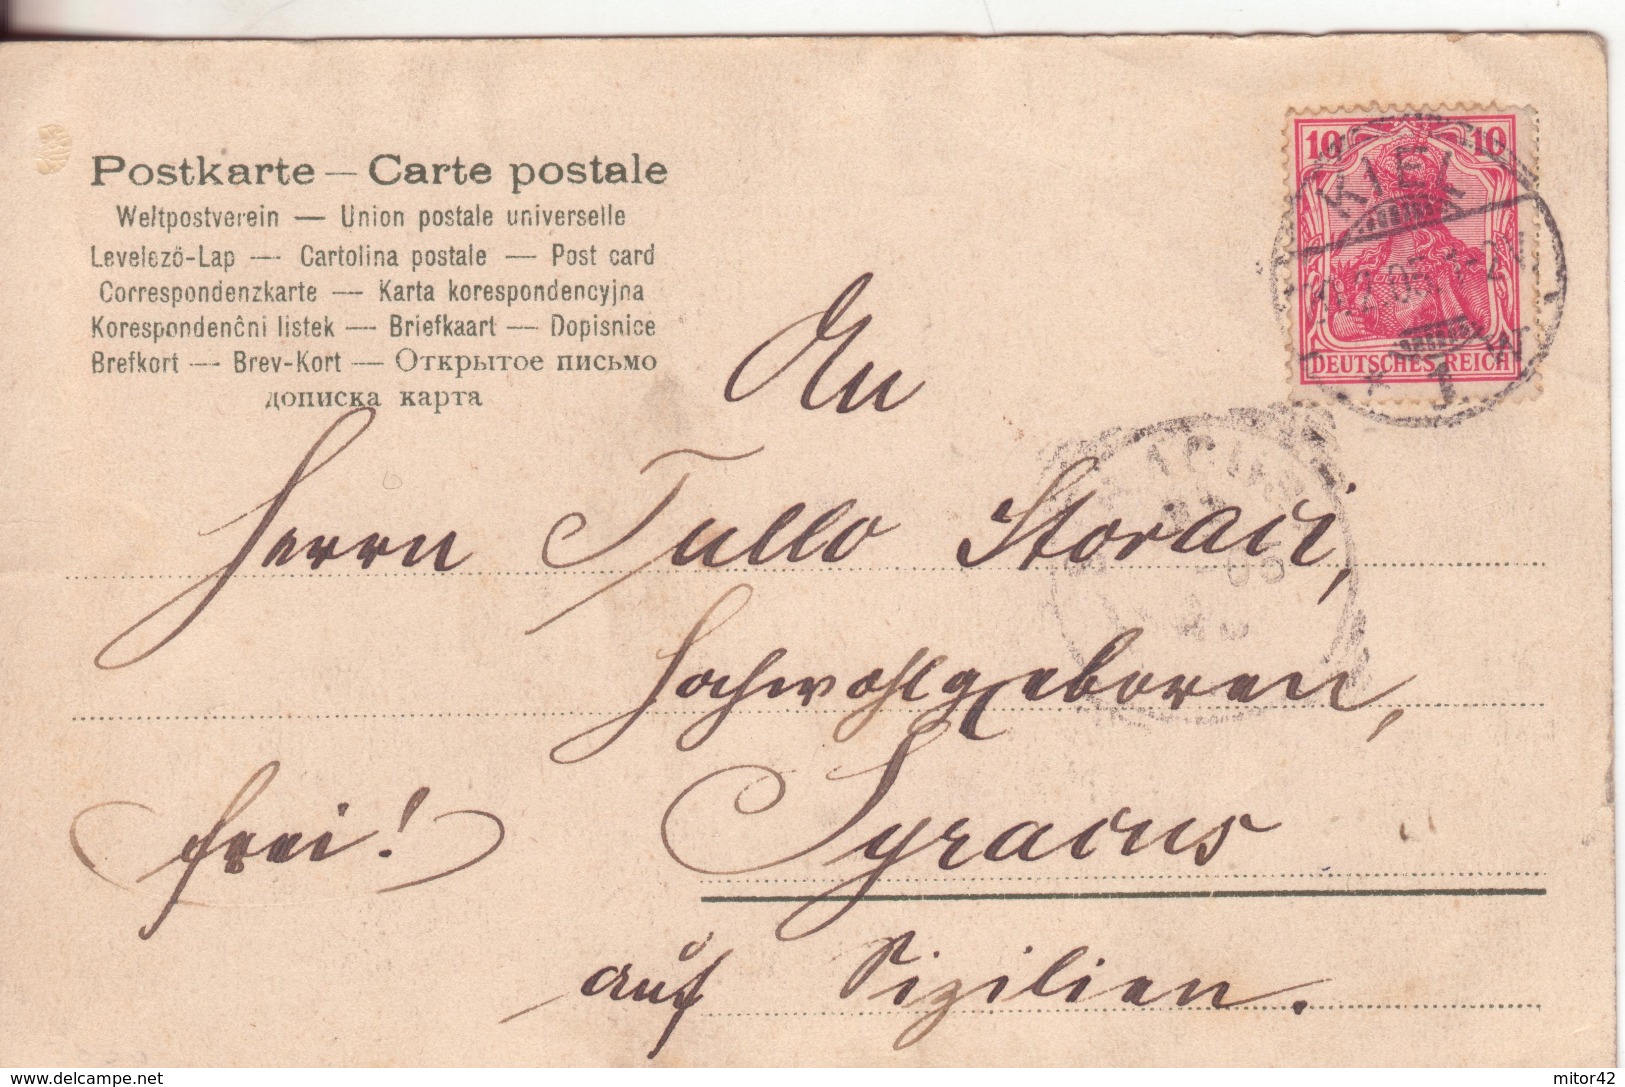 Postkarte — Carte postale
Weltpostverein — Union postale universelle
Levelező-Lap — Cartolina postale — Post card
Correspondenzkarte — Karta korespondencyjna
Korespondenčni listek — Briefkaart — Dopisnice
Brefkort — Brev-Kort — Открытое письмо
дописка карта
10 10
KIEL
DEUTSCHES REICH
* 1
An
Herrn Tullo Storaci,
Hochwohlgeboren,
frei! Syracus
auf Sizilien.
www.delcampe.net
mitor42